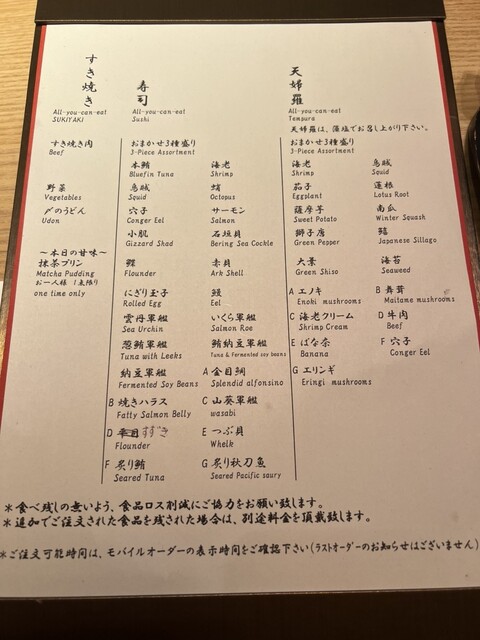 すき焼き
All-you-can-eat
SUKIYAKI
すき焼き肉
Beef
野菜
Vegetables
〆のうどん
Udon
〜本日の甘味〜
抹茶プリン
Matcha Pudding
お一人様 1点限り
one time only
寿司
All-you-can-eat
Sushi
おまかせ3種盛り
3-Piece Assortment
本鮪 海老
Bluefin Tuna Shrimp
烏賊 蛸
Squid Octopus
穴子 サーモン
Conger Eel Salmon
小肌 石垣貝
Gizzard Shad Bering Sea Cockle
鰈 赤貝
Flounder Ark Shell
にぎり玉子 鰻
Rolled Egg Eel
雲丹軍艦 いくら軍艦
Sea Urchin Salmon Roe
葱鮪軍艦 鮪納豆軍艦
Tuna with Leeks Tuna & Fermented soy beans
納豆軍艦 A 金目鯛
Fermented Soy Beans Splendid alfonsino
B 焼きハラス C 山葵軍艦
Fatty Salmon Belly wasabi
D すずき E つぶ貝
Flounder Whelk
F 炙り鮪 G 炙り秋刀魚
Seared Tuna Seared Pacific saury
天婦羅
All-you-can-eat
Tempura
天婦羅は、藻塩でお召し上がり下さい。
おまかせ3種盛り
3-Piece Assortment
海老 烏賊
Shrimp Squid
茄子 蓮根
Eggplant Lotus Root
薩摩芋 南瓜
Sweet Potato Winter Squash
獅子唐 鱚
Green Pepper Japanese Sillago
大葉 海苔
Green Shiso Seaweed
A エノキ B 舞茸
Enoki mushrooms Maitame mushrooms
C 海老クリーム D 牛肉
Shrimp Cream Beef
E ばな奈 F 穴子
Banana Conger Eel
G エリンギ
Eringi mushrooms
＊食べ残しの無いよう、食品ロス削減にご協力をお願い致します。
＊追加でご注文された食品を残された場合は、別途料金を頂戴致します。
＊ご注文可能時間は、モバイルオーダーの表示時間をご確認下さい(ラストオーダーのお知らせはございません)